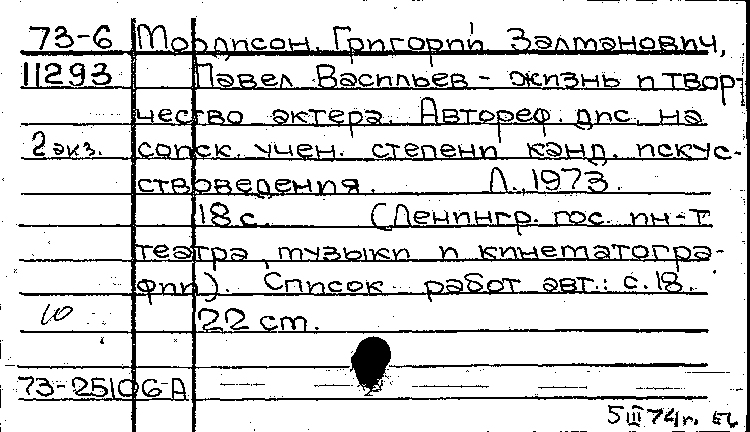 73-6 Мордисон, Григорий Залманович,
11293 Павел Васильев - жизнь и твор-
чество актера. Автореф. дис. на
2 экз. соиск. учен. степени канд. искус-
ствоведения. Л., 1973.
18 с. (Ленингр. гос. ин-т
театра, музыки и кинематогра-
фии). Список работ авт.: с. 18.
10 22 см.
73-25106 А
5 III 74 г.